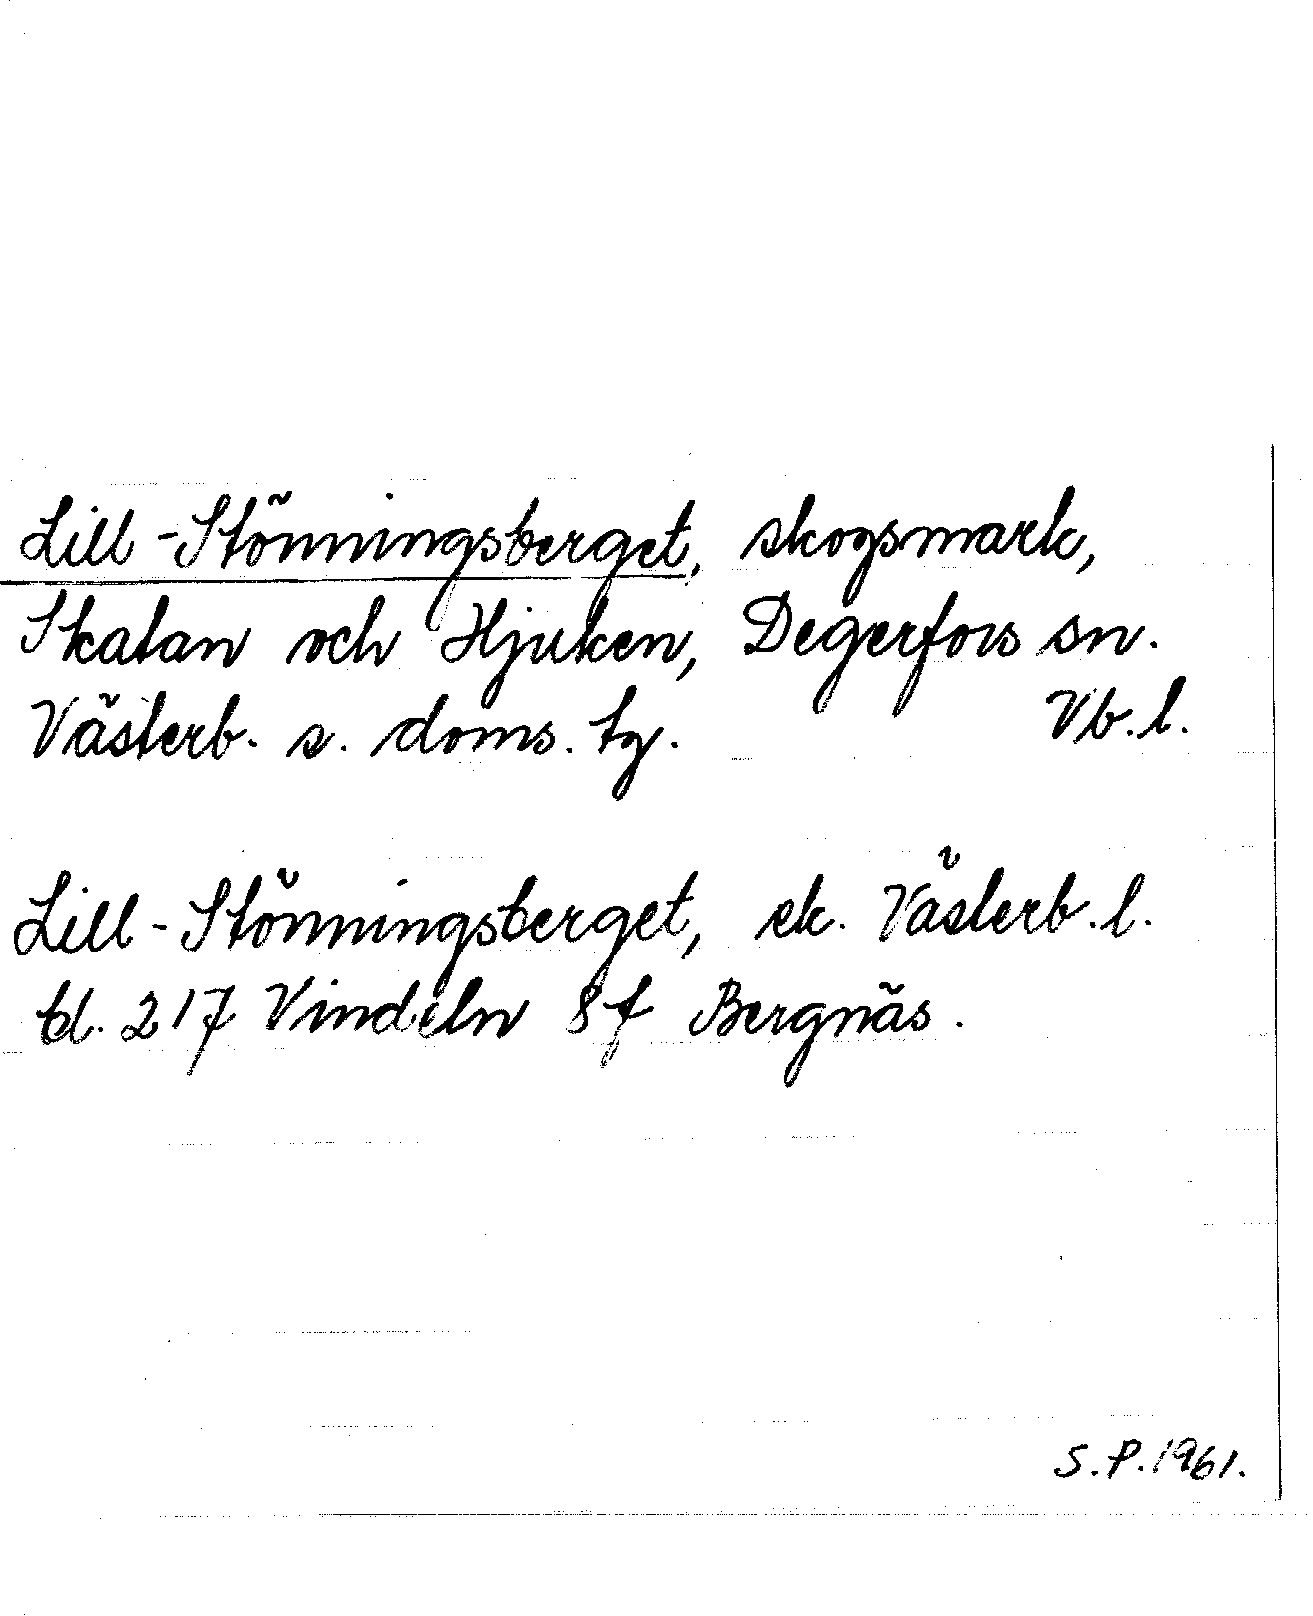 Lill-Stönningsberget, skogsmark,
Skatan och Hjuken, Degerfors sn.
Västerb. s. doms. tg. Vb.l.
Lill-Stönningsberget, ek. Västerb.l.
bl. 217 Vindeln 8f Bergnäs.
S.P.1961.